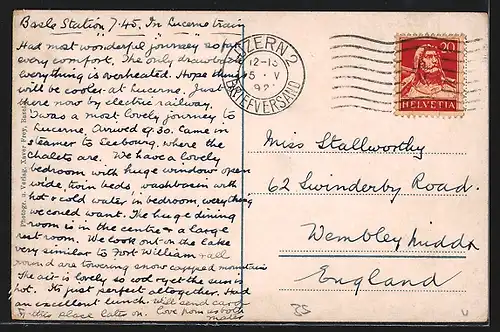 Basle Station, 7.45. In Lucerne train
Had most wonderful journey so far
every comfort. The only drawback
everything is overheated. Hope things
will be cooler at Lucerne. Just
there now by electric railway.
Twas a most lovely journey to
Lucerne, Arrived 9.30. Came in
steamer to Seebourg, where the
Chalets are. We have a lovely
bedroom with huge window open
wide, twin beds, washbasin with
hot & cold water, in bedroom, everything
we could want. The huge dining
room is in the centre & a large
rest room. We look out on the lake
very similar to Fort William & all
round are towering snow capped mountains
The air is lovely so cool & yet the sun is
hot. It's just perfect altogether. Had
an excellent lunch. Will send card
of this place later on. Love from us both
Mater
Photogr. u. Verlag, Xaver Frey,
LUZERN 2
12-13
5. V
BRIEFVERSAND
20
HELVETIA
Miss Stallworthy
62 Swinderby Road.
Wembley Middx
England
35